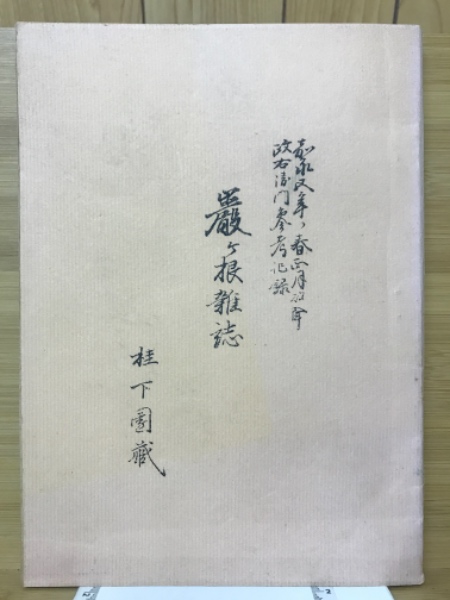 嘉永又年ノ春正月改年
政右衛門参考記録
巖ヶ根雑誌
桂下園藏